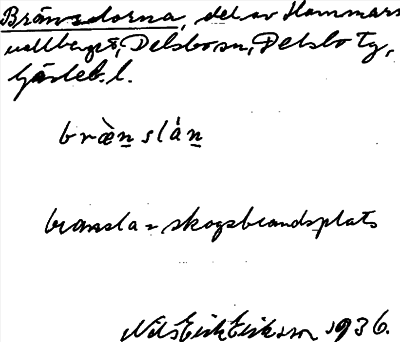 Bränslorna, del av Hammars
vallberget, Delsbo sn, Delsbo tg,
Gävleb. l.
bræ̀nslán
bransla = skogsbrandsplats
Nils Erik Eriksson 1936.